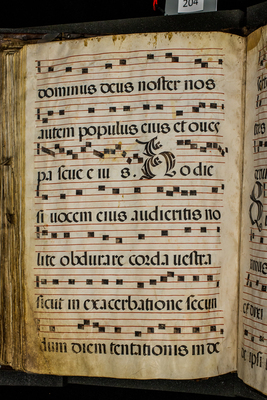 204
dominus deus noster nos
autem populus eius et oues
pascue eius. Hodie
si uocem eius audieritis no
lite obdurare corda uestra
sicut in exacerbatione secun
dum diem tentationis in de